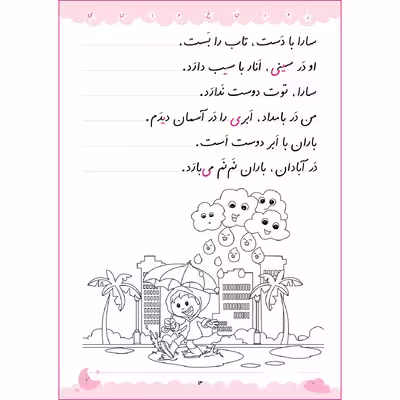 سارا با دَست، تاب را بَست.
او دَر سینی، اَنار با سیب دارَد.
سارا، توت دوست نَدارَد.
مَن دَر بامداد، اَبری را دَر آسِمان دیدَم.
باران با اَبر دوست اَست.
دَر آبادان، باران نَم‌نَم می‌بارَد.